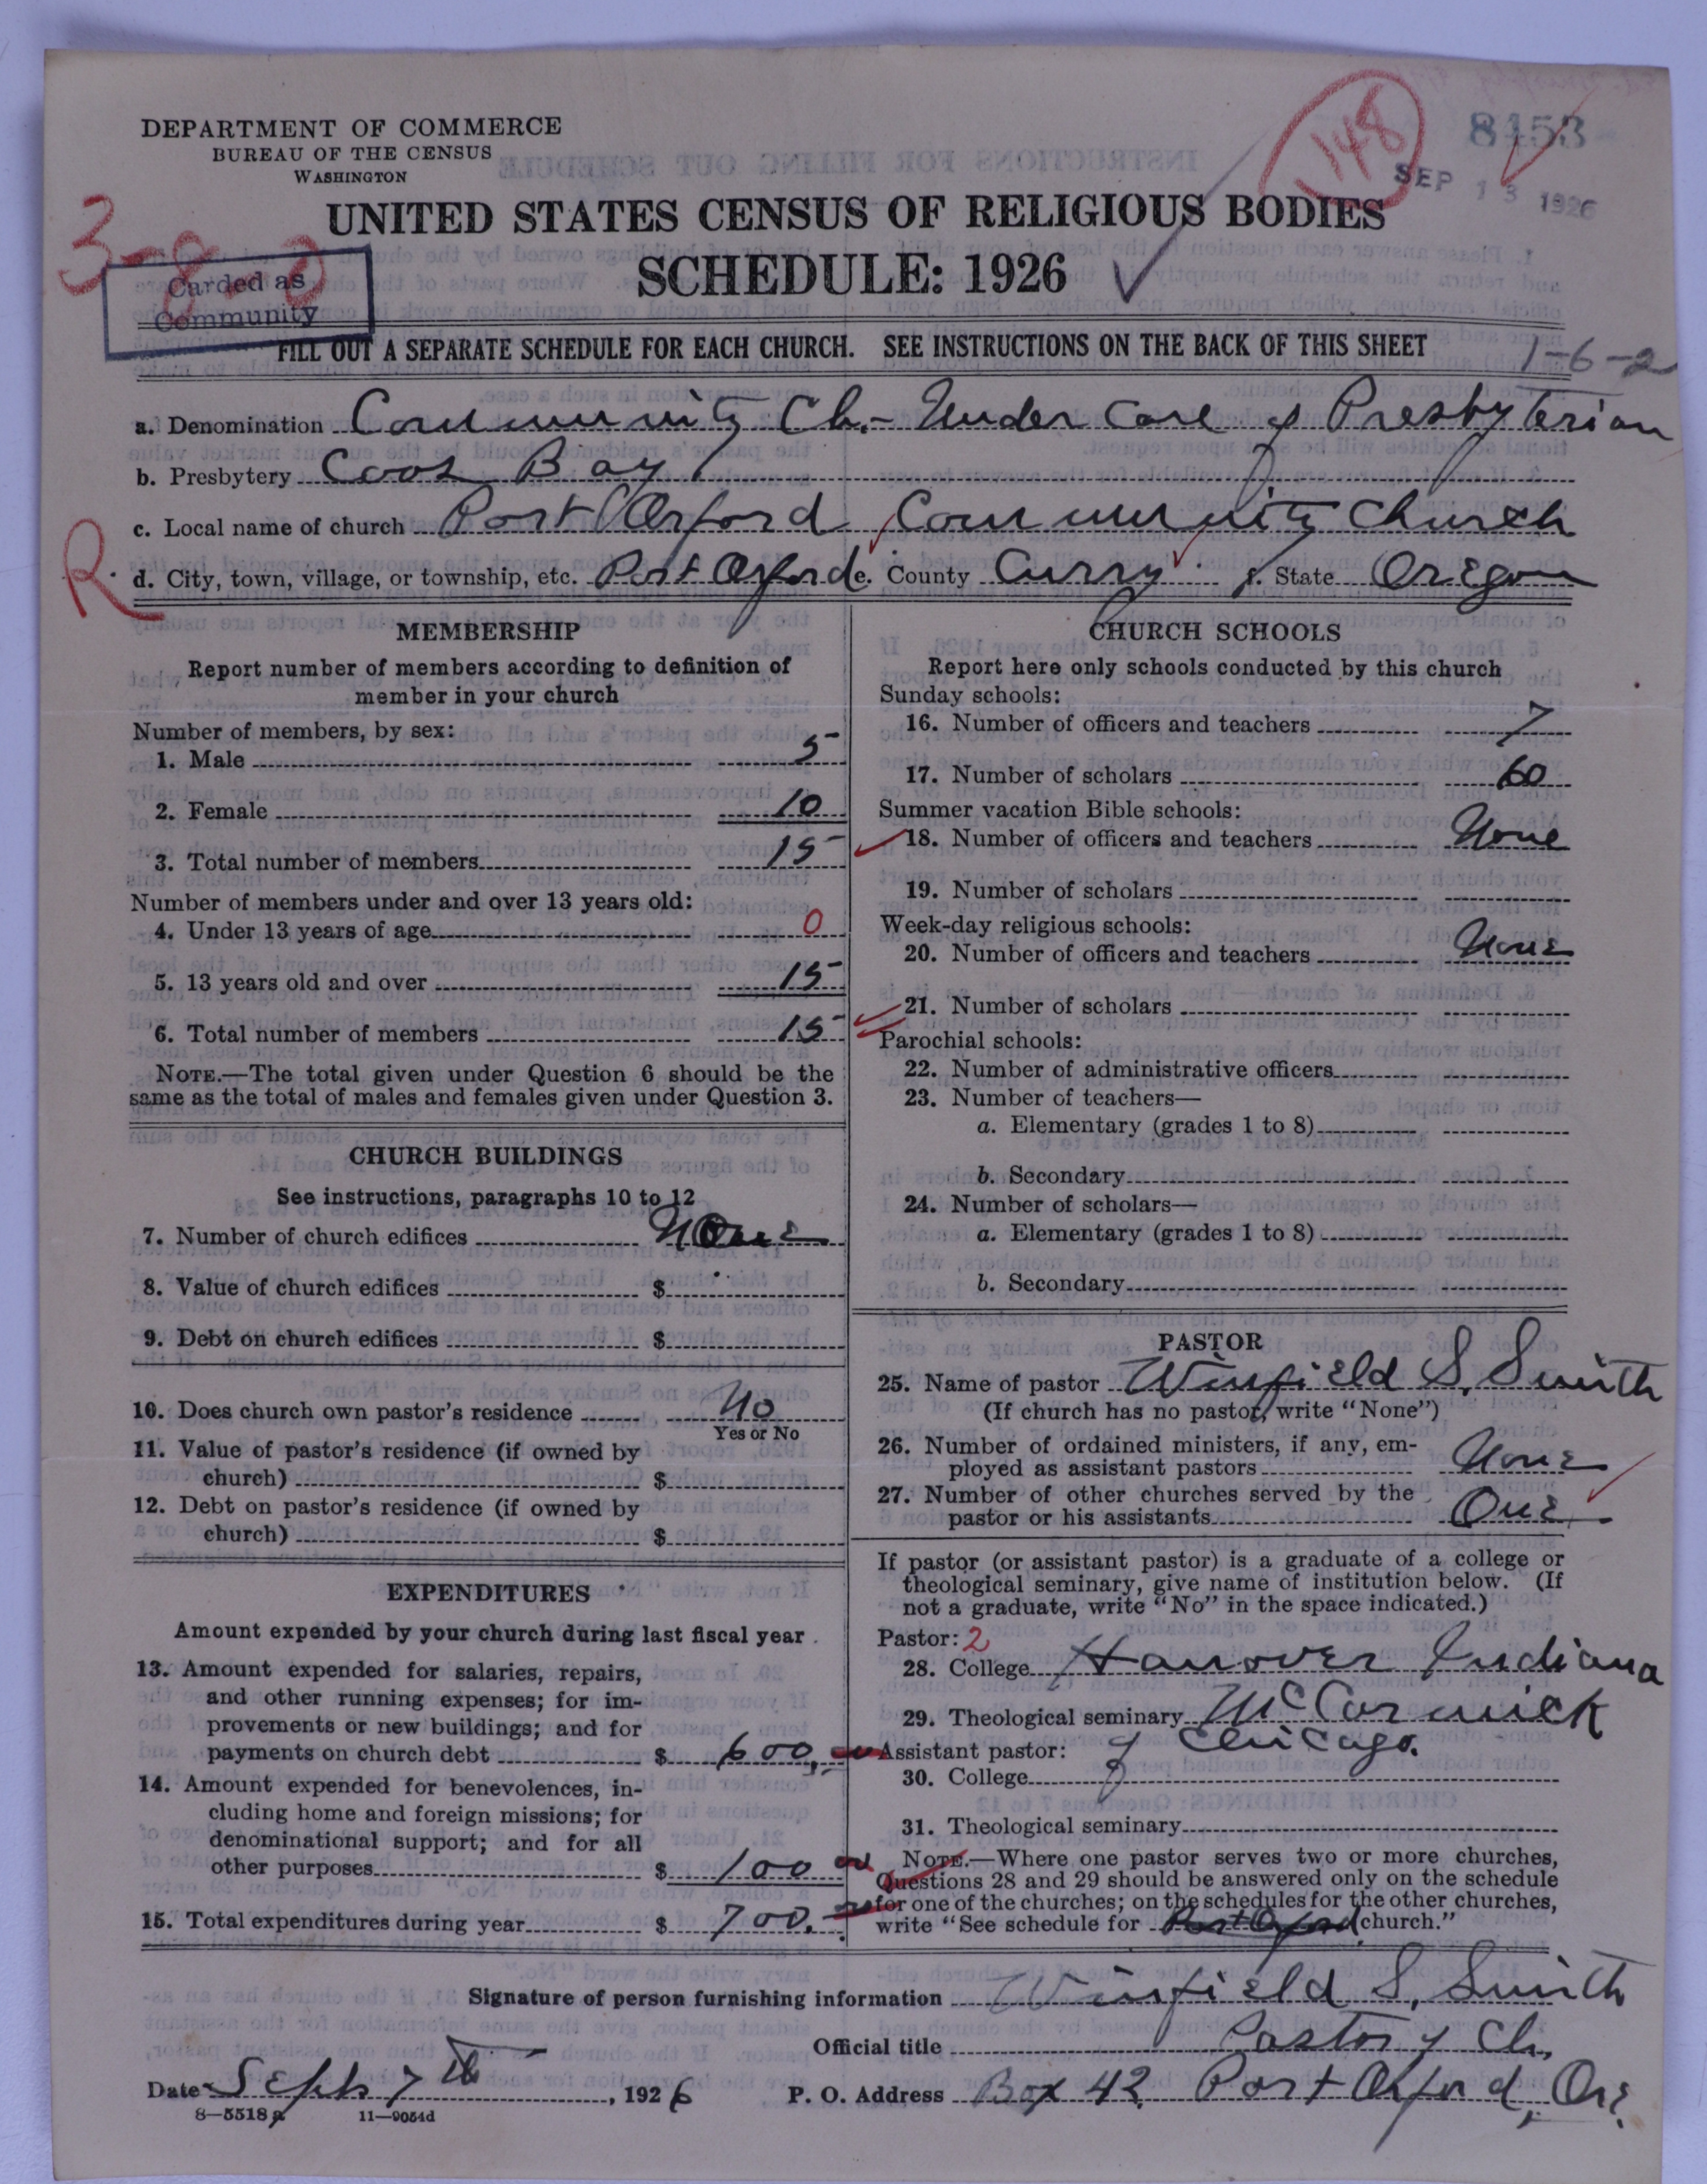 DEPARTMENT OF COMMERCE
BUREAU OF THE CENSUS
WASHINGTON
148
8453
SEP 13 1926
UNITED STATES CENSUS OF RELIGIOUS BODIES
SCHEDULE: 1926
3-8-0
Carded as
Community
FILL OUT A SEPARATE SCHEDULE FOR EACH CHURCH. SEE INSTRUCTIONS ON THE BACK OF THIS SHEET
1-6-2
a. Denomination Community Ch.- Under Care of Presbyterian
b. Presbytery Coos Bay
c. Local name of church Port Orford Community Church
R
d. City, town, village, or township, etc. Port Orford e. County Curry f. State Oregon
MEMBERSHIP
Report number of members according to definition of
member in your church
Number of members, by sex:
1. Male 5
2. Female 10
3. Total number of members 15
Number of members under and over 13 years old:
4. Under 13 years of age 0
5. 13 years old and over 15
6. Total number of members 15
NOTE.—The total given under Question 6 should be the
same as the total of males and females given under Question 3.
CHURCH BUILDINGS
See instructions, paragraphs 10 to 12
7. Number of church edifices None
8. Value of church edifices $
9. Debt on church edifices $
10. Does church own pastor's residence No
Yes or No
11. Value of pastor's residence (if owned by
church) $
12. Debt on pastor's residence (if owned by
church) $
EXPENDITURES
Amount expended by your church during last fiscal year
13. Amount expended for salaries, repairs,
and other running expenses; for im-
provements or new buildings; and for
payments on church debt $ 600.
14. Amount expended for benevolences, in-
cluding home and foreign missions; for
denominational support; and for all
other purposes $ 100
15. Total expenditures during year $ 700.
CHURCH SCHOOLS
Report here only schools conducted by this church
Sunday schools:
16. Number of officers and teachers 7
17. Number of scholars 60
Summer vacation Bible schools:
18. Number of officers and teachers None
19. Number of scholars
Week-day religious schools:
20. Number of officers and teachers None
21. Number of scholars
Parochial schools:
22. Number of administrative officers
23. Number of teachers—
a. Elementary (grades 1 to 8)
b. Secondary
24. Number of scholars—
a. Elementary (grades 1 to 8)
b. Secondary
PASTOR
25. Name of pastor Winfield S. Smith
(If church has no pastor, write "None")
26. Number of ordained ministers, if any, em-
ployed as assistant pastors None
27. Number of other churches served by the
pastor or his assistants One
If pastor (or assistant pastor) is a graduate of a college or
theological seminary, give name of institution below. (If
not a graduate, write "No" in the space indicated.)
Pastor: 2
28. College Hanover Indiana
29. Theological seminary McCormick
Assistant pastor: of Chicago.
30. College
31. Theological seminary
NOTE.—Where one pastor serves two or more churches,
Questions 28 and 29 should be answered only on the schedule
for one of the churches; on the schedules for the other churches,
write "See schedule for Port Orford church."
Signature of person furnishing information Winfield S. Smith
Official title Pastor of Ch.
Date Sept 7th, 1926 P. O. Address Box 42 Port Orford, Ore.
8—5518a 11—9054d